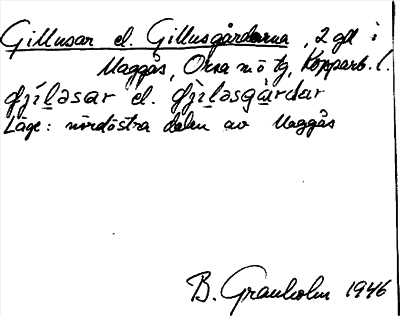 Gillusar el. Gillusgårdarna, 2 gdr i
Maggås, Orsa sn o tg, Kopparb. l.
ʤi̱ləsar el. ʤi̱ləsgàrdar
Läge: nordöstra delen av Maggås
B. Granholm 1946